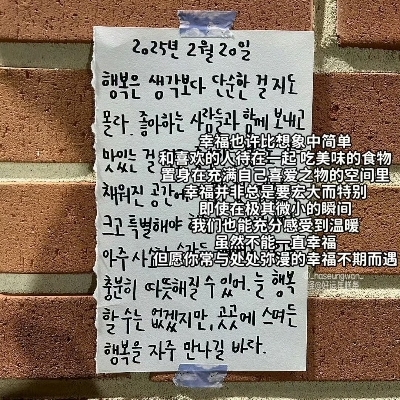 2025년 2월 20일
행복은 생각보다 단순한 걸지도
몰라. 좋아하는 사람들과 함께 보내고
맛있는 걸
채워진 공간에
크고 특별해야
아주 사소한
충분히 따뜻해질 수 있어. 늘 행복
할 수는 없겠지만, 곳곳에 스며든
행복을 자주 만나길 바라.
幸福也许比想象中简单
和喜欢的人待在一起 吃美味的食物
置身在充满自己喜爱之物的空间里
幸福并非总是要宏大而特别
即使在极其微小的瞬间
我们也能充分感受到温暖
虽然不能一直幸福
但愿你常与处处弥漫的幸福不期而遇